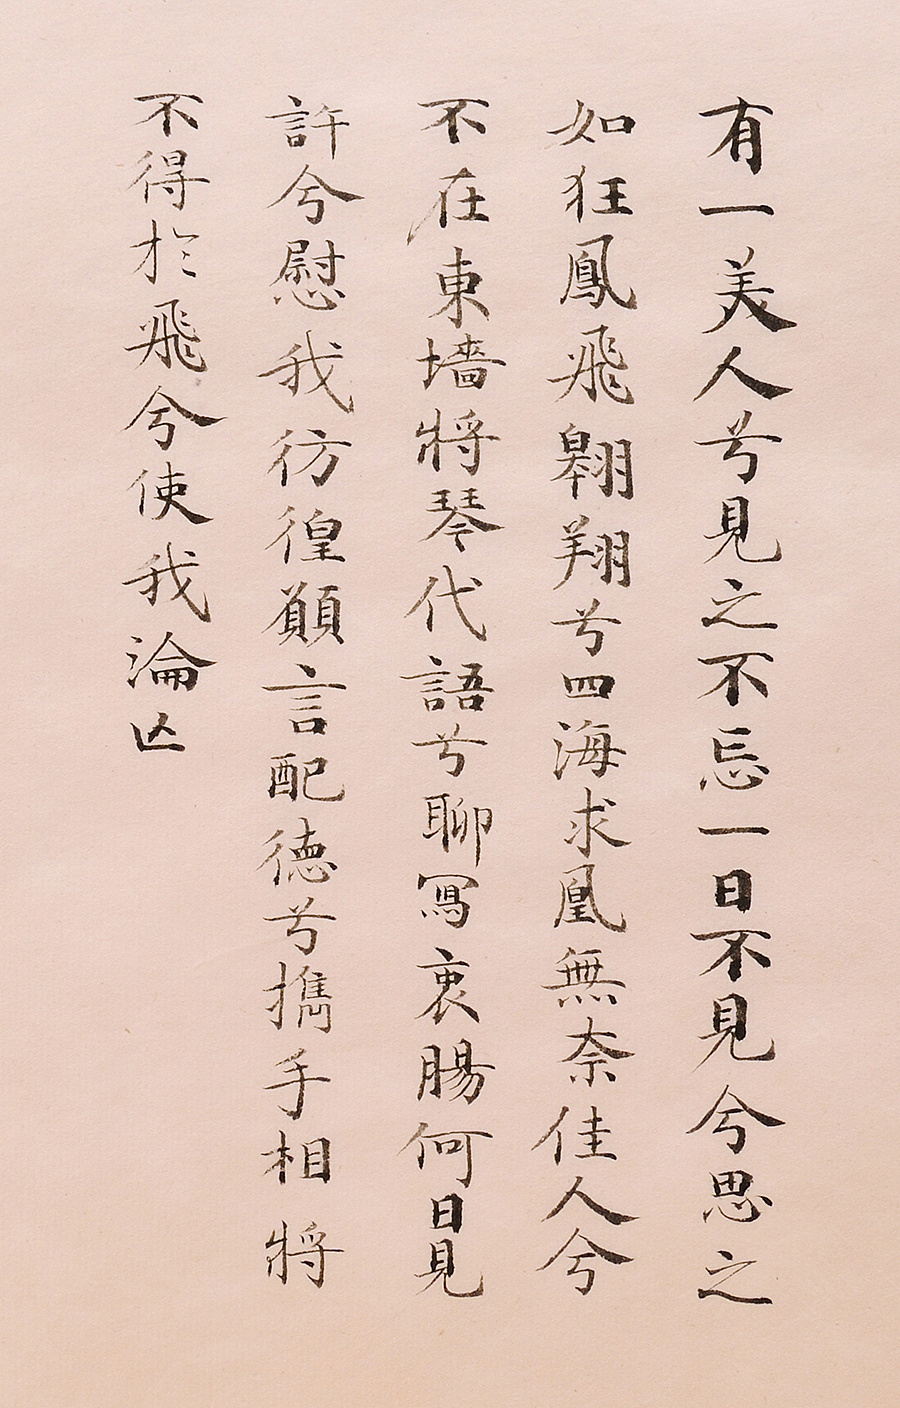 有一美人兮見之不忘一日不見兮思之
如狂鳳飛翱翔兮四海求凰無奈佳人兮
不在東墻將琴代語兮聊寫衷腸何日見
許兮慰我彷徨願言配德兮攜手相將
不得於飛兮使我淪亡